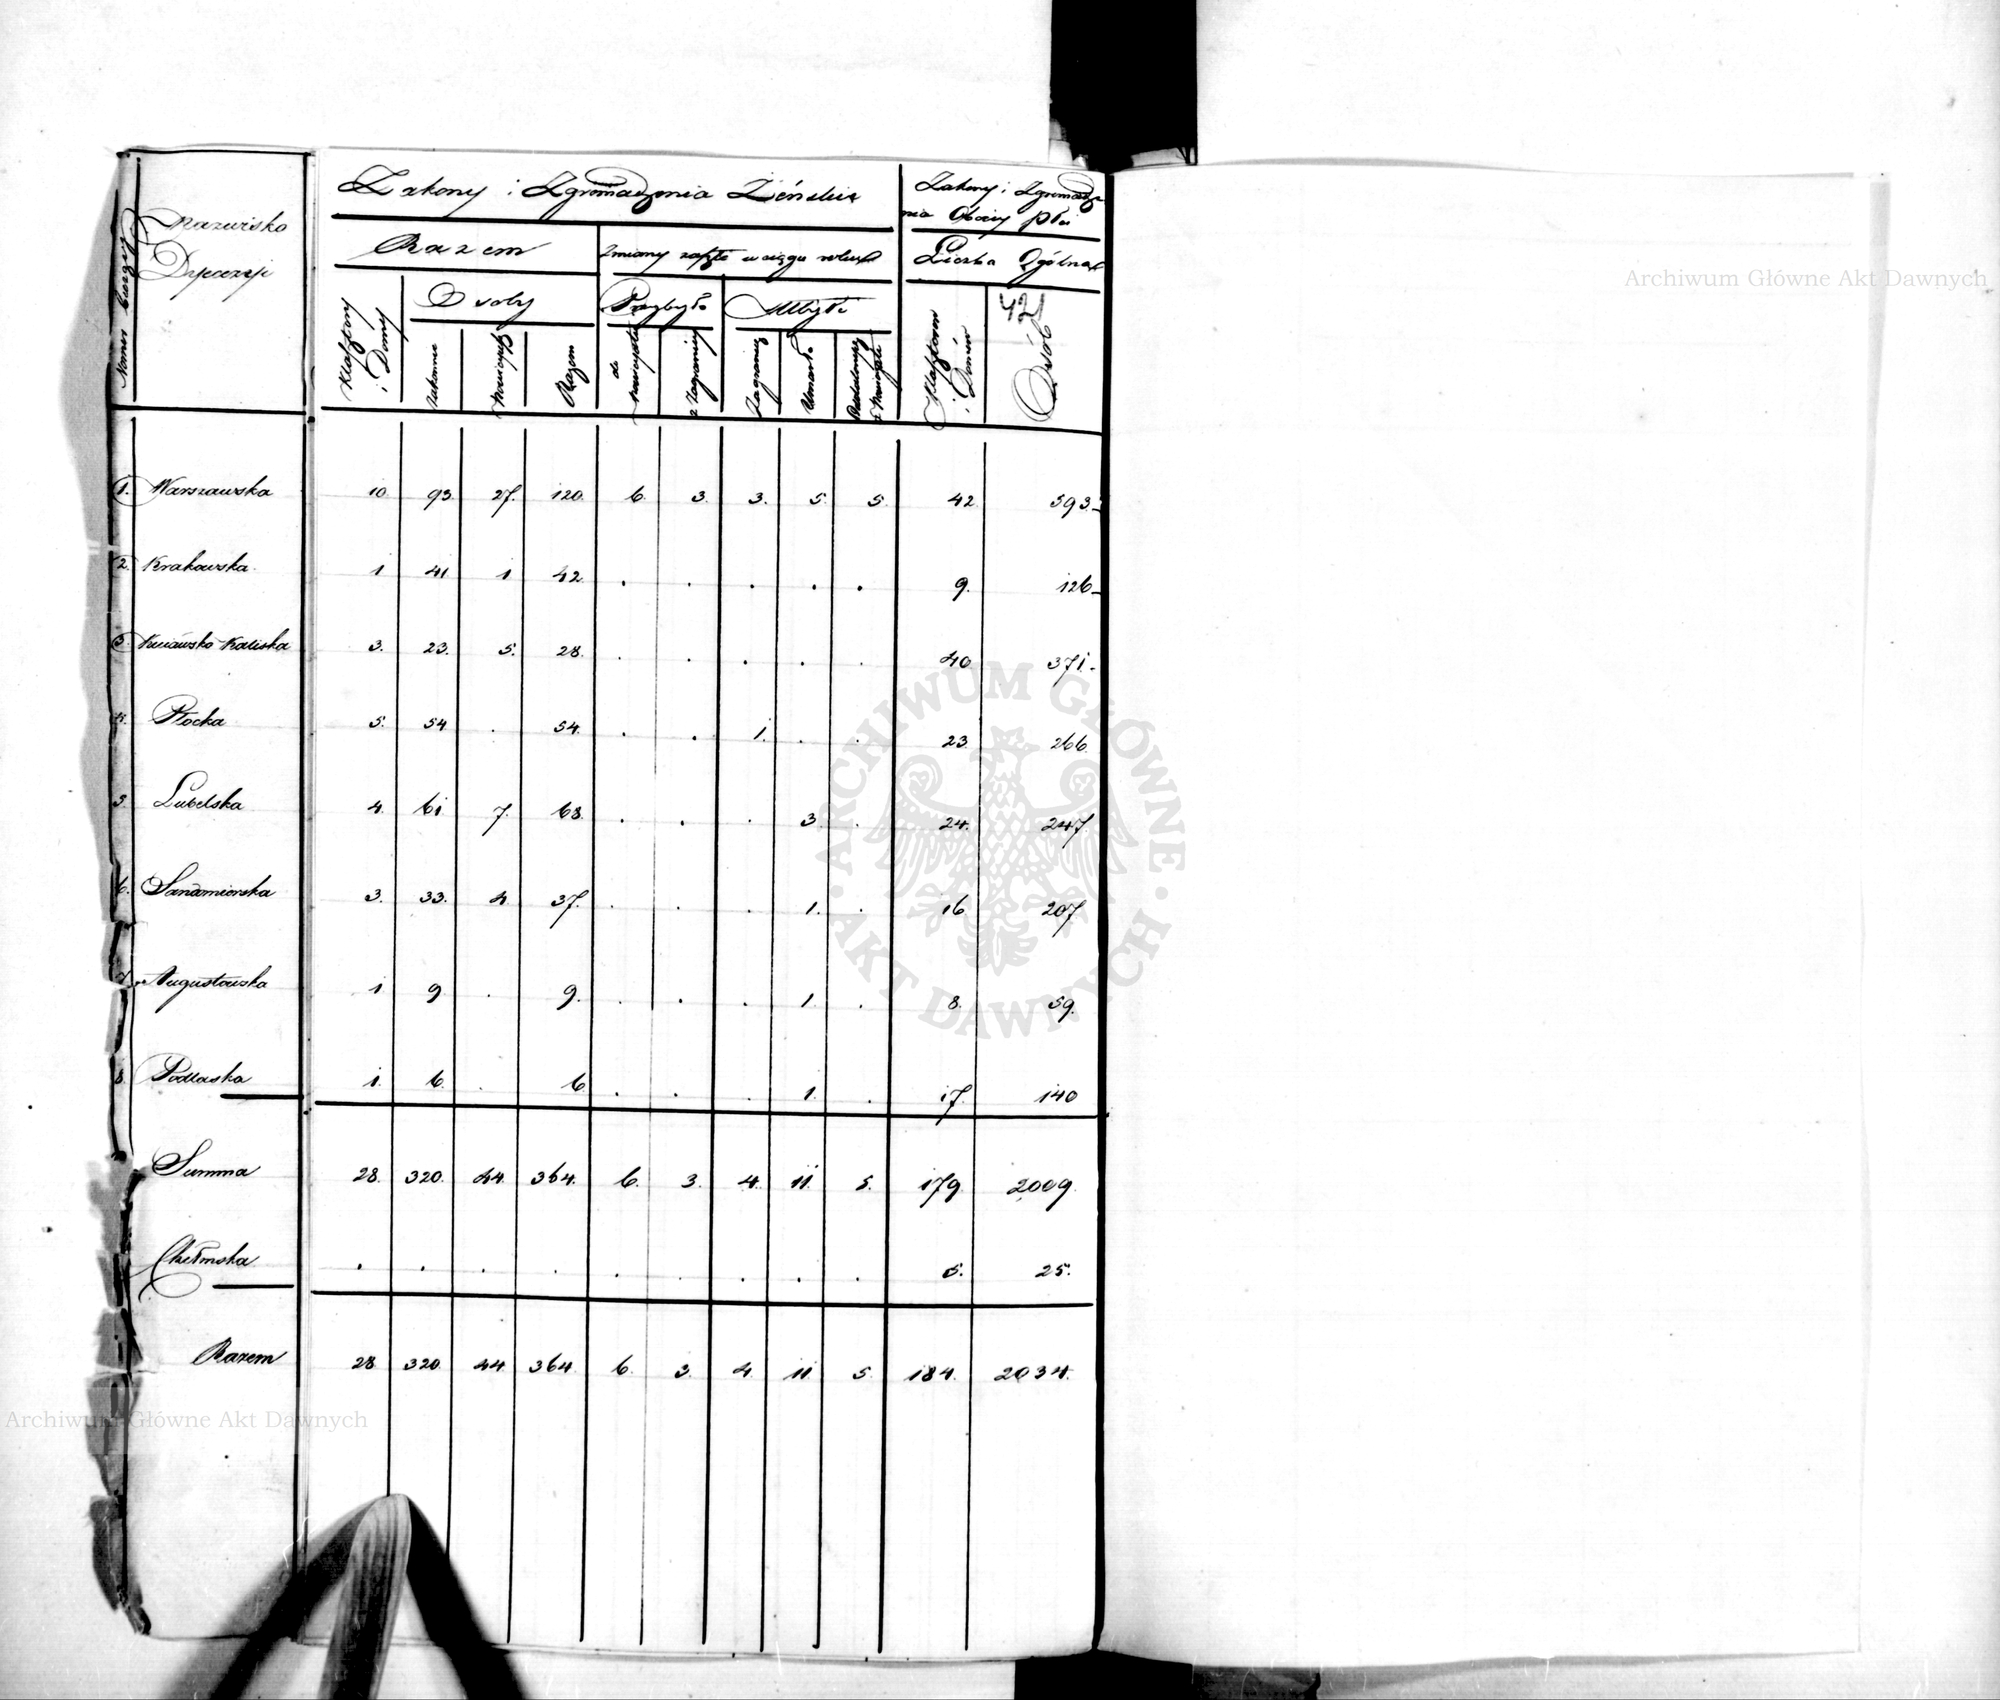 Zakony i Zgromadzenia Żeńskie
Zakony i Zgromadze-
nia Obojej Płci
Numer bieżący
Nazwisko
Dyecezji
Razem
Zmiany zaszłe w ciągu roku
Liczba Ogólna
Klasztory i Domy
Osoby
Przybyło
Ubyło
Klasztorów i Domów
42
Osób
Zakonne
Nowicyuszki
Razem
do Nowicyatu
z Zagranicy
Zagranicę
Umarło
z Nowicyatu
1. Warszawska 10. 93. 27. 120. 6. 3. 3. 5. 5. 42 593.
2. Krakowska. 1 41 1 42 . . . . . 9. 126
3. Kujawsko Kaliska 3. 23. 5. 28. . . . . . 40 371.
4. Płocka 5. 54 . 54. . . 1. . . 23. 266.
5. Lubelska 4. 61 7. 68. . . . 3. . 24. 247.
6. Sandomierska 3. 33. 4. 37. . . . 1. . 16 207
7. Augustowska 1 9 . 9. . . . 1. . 8. 59.
8. Podlaska 1. 6. . 6 . . . 1. . 17. 140
Summa 28. 320. 44. 364. 6. 3. 4. 11. 5. 179 2009.
Chełmska . . . . . . . . . 5. 25.
Razem 28 320 44 364. 6. 3. 4. 11 5. 184. 2034.
Archiwum Główne Akt Dawnych
ARCHIWUM GŁÓWNE · AKT DAWNYCH ·
Archiwum Główne Akt Dawnych